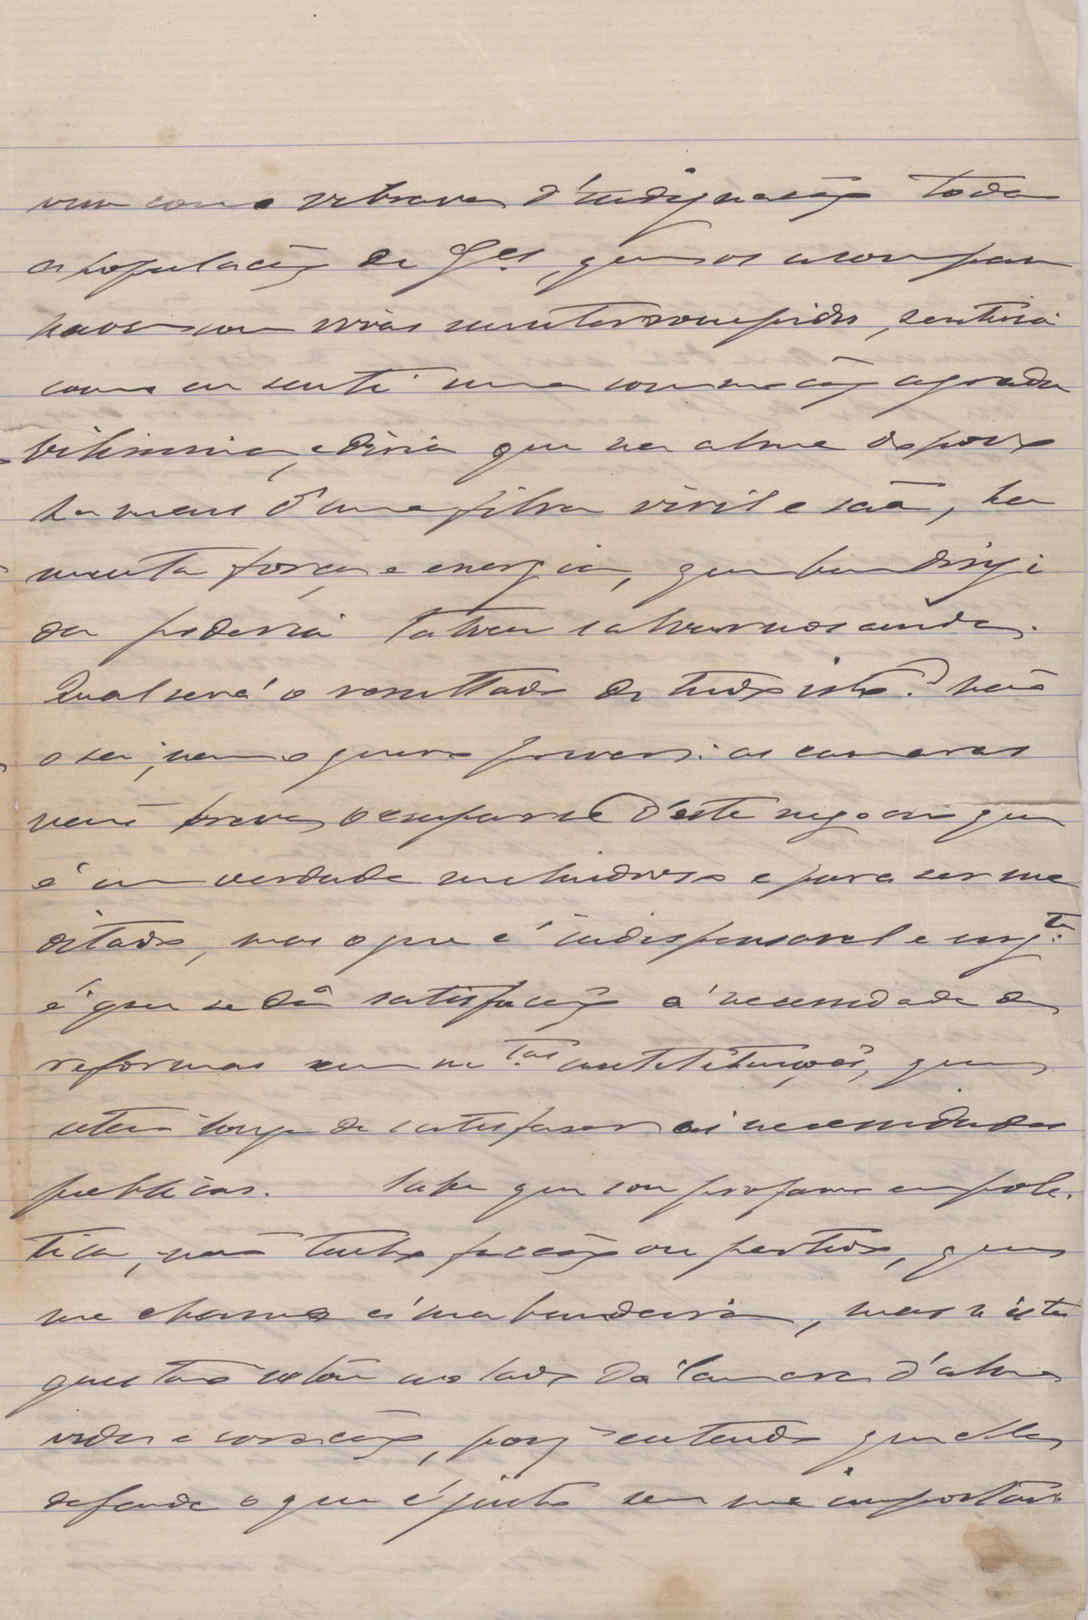 visse como vibrava d'indignação toda
a população de G.es, que os acompa
nhava com vivas ininterrompidos, sentiria
como eu senti uma commoção agrada
bilissima, e diria que na alma do povo
ha mais d'uma fibra viril e sã, ha
muita força e energia, que bem dirigi
da poderia talvez salvar-nos ainda.
Qual será o resultado de tudo isto? Não
o sei, nem o quero prever: as camaras
vão breve occupar-se d'este negocio que
é em verdade melindroso e para ser me
ditado, mas o que é indispensavel e urg.te
é que se dê satisfação á necessidade de
reformas em m.tas instituições, que
estão longe de satisfazer ás necessidades
publicas. Sabe que sou profano em poli
tica, não tenho facção ou partido, que
me chame á sua bandeira, mas n'esta
questão estou ao lado da Camara d'alma
vida e coração, porq entendo que ella
defende o que é justo sem me importar